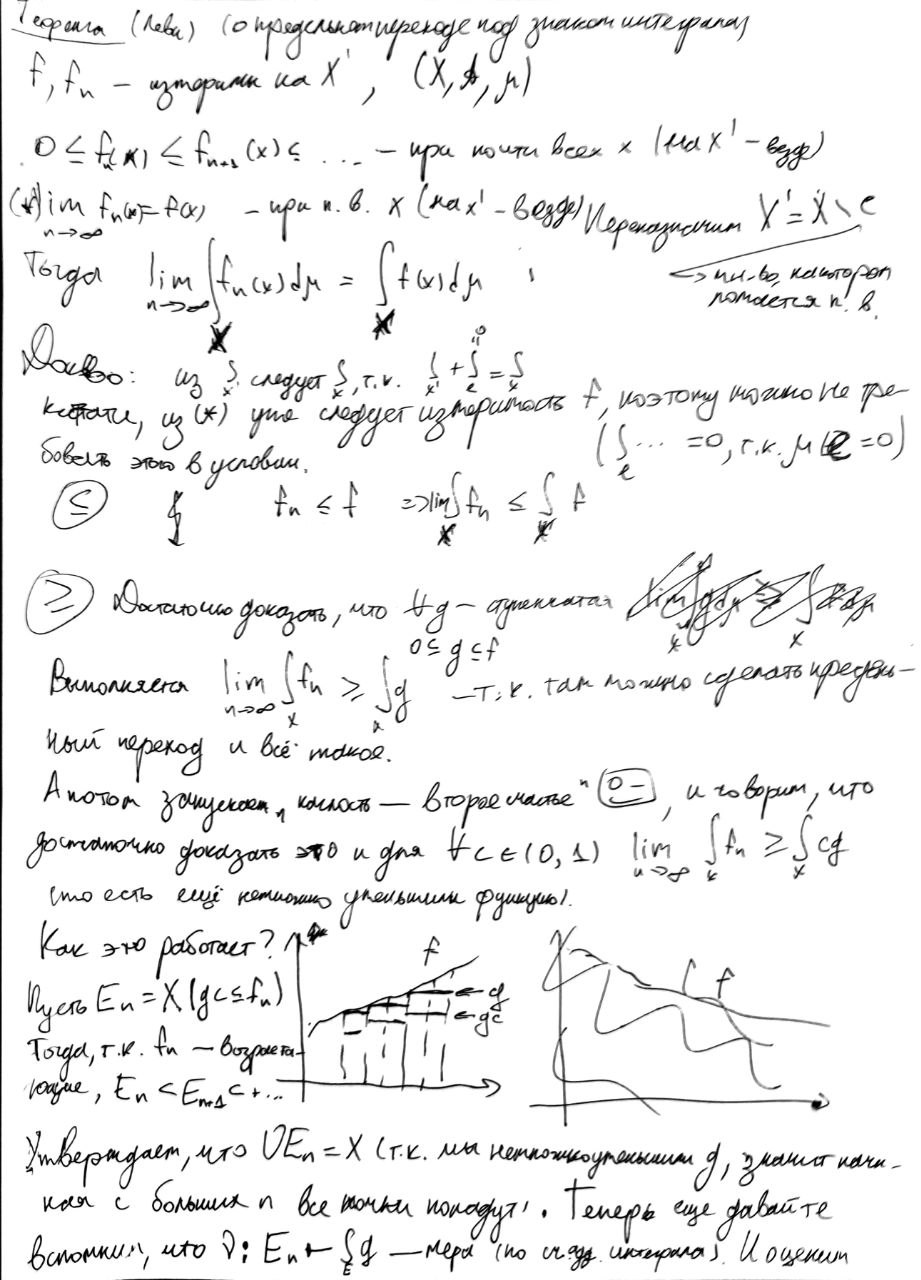 Теорема (Леви) (о предельном переходе под знаком интеграла)
f, fₙ – измеримы на X', (X, A, μ)
0 ≤ fₙ(x) ≤ fₙ₊₁(x) ≤ ... – при почти всех x (на X' – везде)
(*) lim_{n→∞} fₙ(x) = f(x) – при п. в. x (на X' – везде) Переназначим X' = X \ e
→ мн-во, на котором
ломается п. в.
Тогда lim_{n→∞} ∫_X fₙ(x)dμ = ∫_X f(x)dμ
Док-во: из ∫_{X'} следует ∫_X, т.к. ∫_{X'} + ∫_e = ∫_X
=0
кстати, из (*) уже следует измеримость f, поэтому можно не тре-
бовать этого в условии. (∫_e ... = 0, т.к. μe = 0)
≤ fₙ ≤ f => lim ∫_X fₙ ≤ ∫_X f
≥ Достаточно доказать, что ∀g – ступенчатая
0 ≤ g ≤ f
Выполняется lim_{n→∞} ∫_X fₙ ≥ ∫_X g – т.к. там можно сделать предель-
ный переход и всё такое.
А потом запускаем "наглость – второе счастье", и говорим, что
достаточно доказать это и для ∀c∈(0,1) lim_{n→∞} ∫_X fₙ ≥ ∫_X cg
(то есть ещё немножко уменьшим функцию).
Как это работает?
f
g
gc
f
Пусть Eₙ = X(gc ≤ fₙ)
Тогда, т.к. fₙ – возраста-
ющие, Eₙ ⊂ Eₙ₊₁ ⊂ ...
Утверждает, что ∪Eₙ = X (т.к. мы немножко уменьшили g, значит начи-
ная с больших n все точки попадут). Теперь еще давайте
вспомним, что ν: E ↦ ∫_E g – мера (по интеграла). И оценим